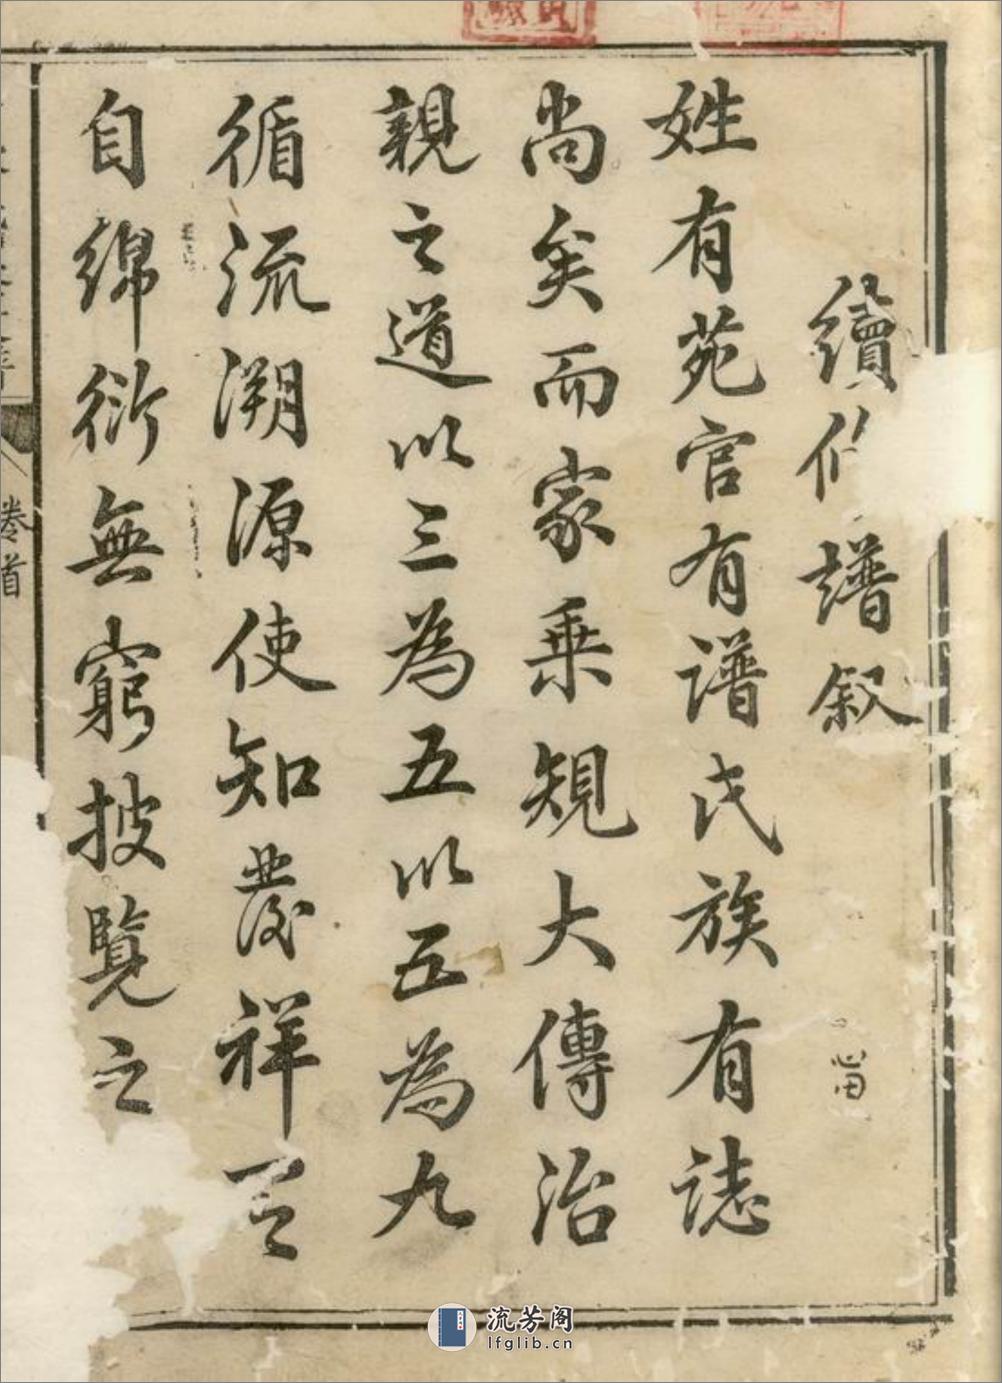 續修譜叙
姓有苑官有譜氏族有誌
尚矣而家乗規大傳治
親之道以三為五以五為九
循流溯源使知發祥有
自綿衍無窮披覽之
卷首
流芳阁
lfglib.cn